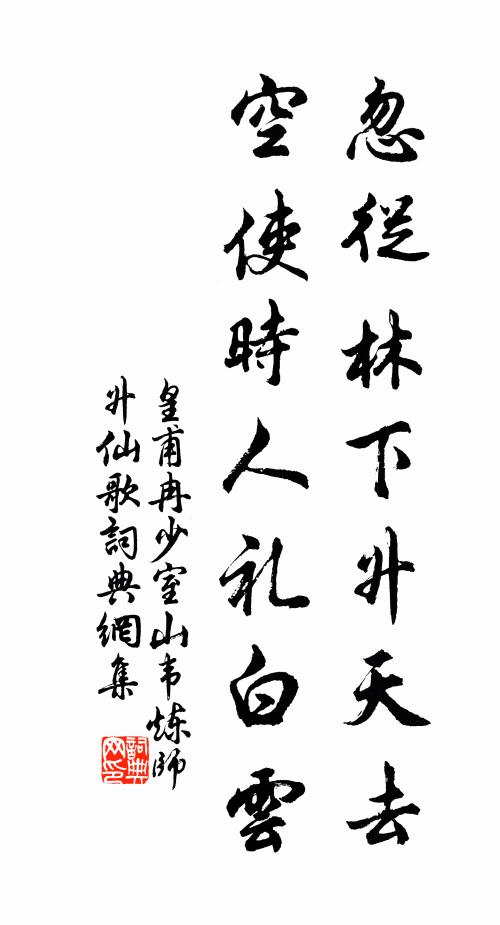 忽從林下升天去
空使時人礼白雲
皇甫冉少室山韦炼師
升仙歌詞典網集
詞典網印